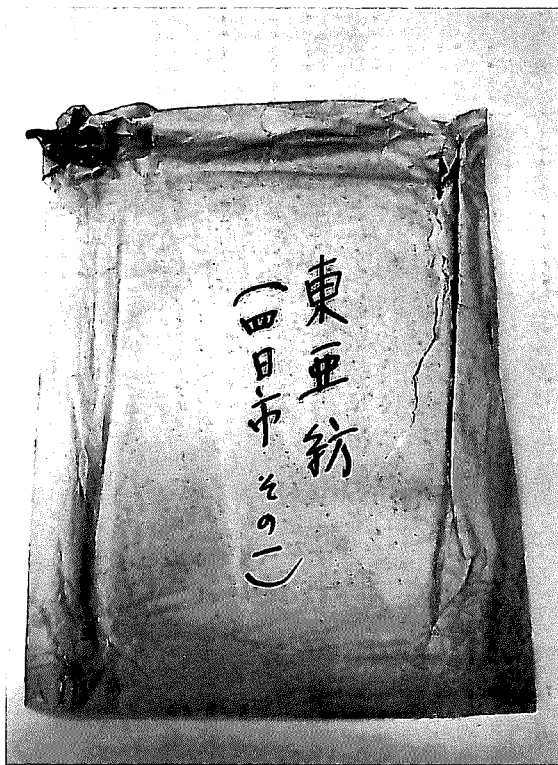 東亜紡
(四日市その一)